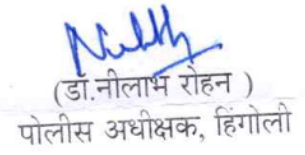 (डॉ.नीलाभ रोहन )
पोलीस अधीक्षक, हिंगोली